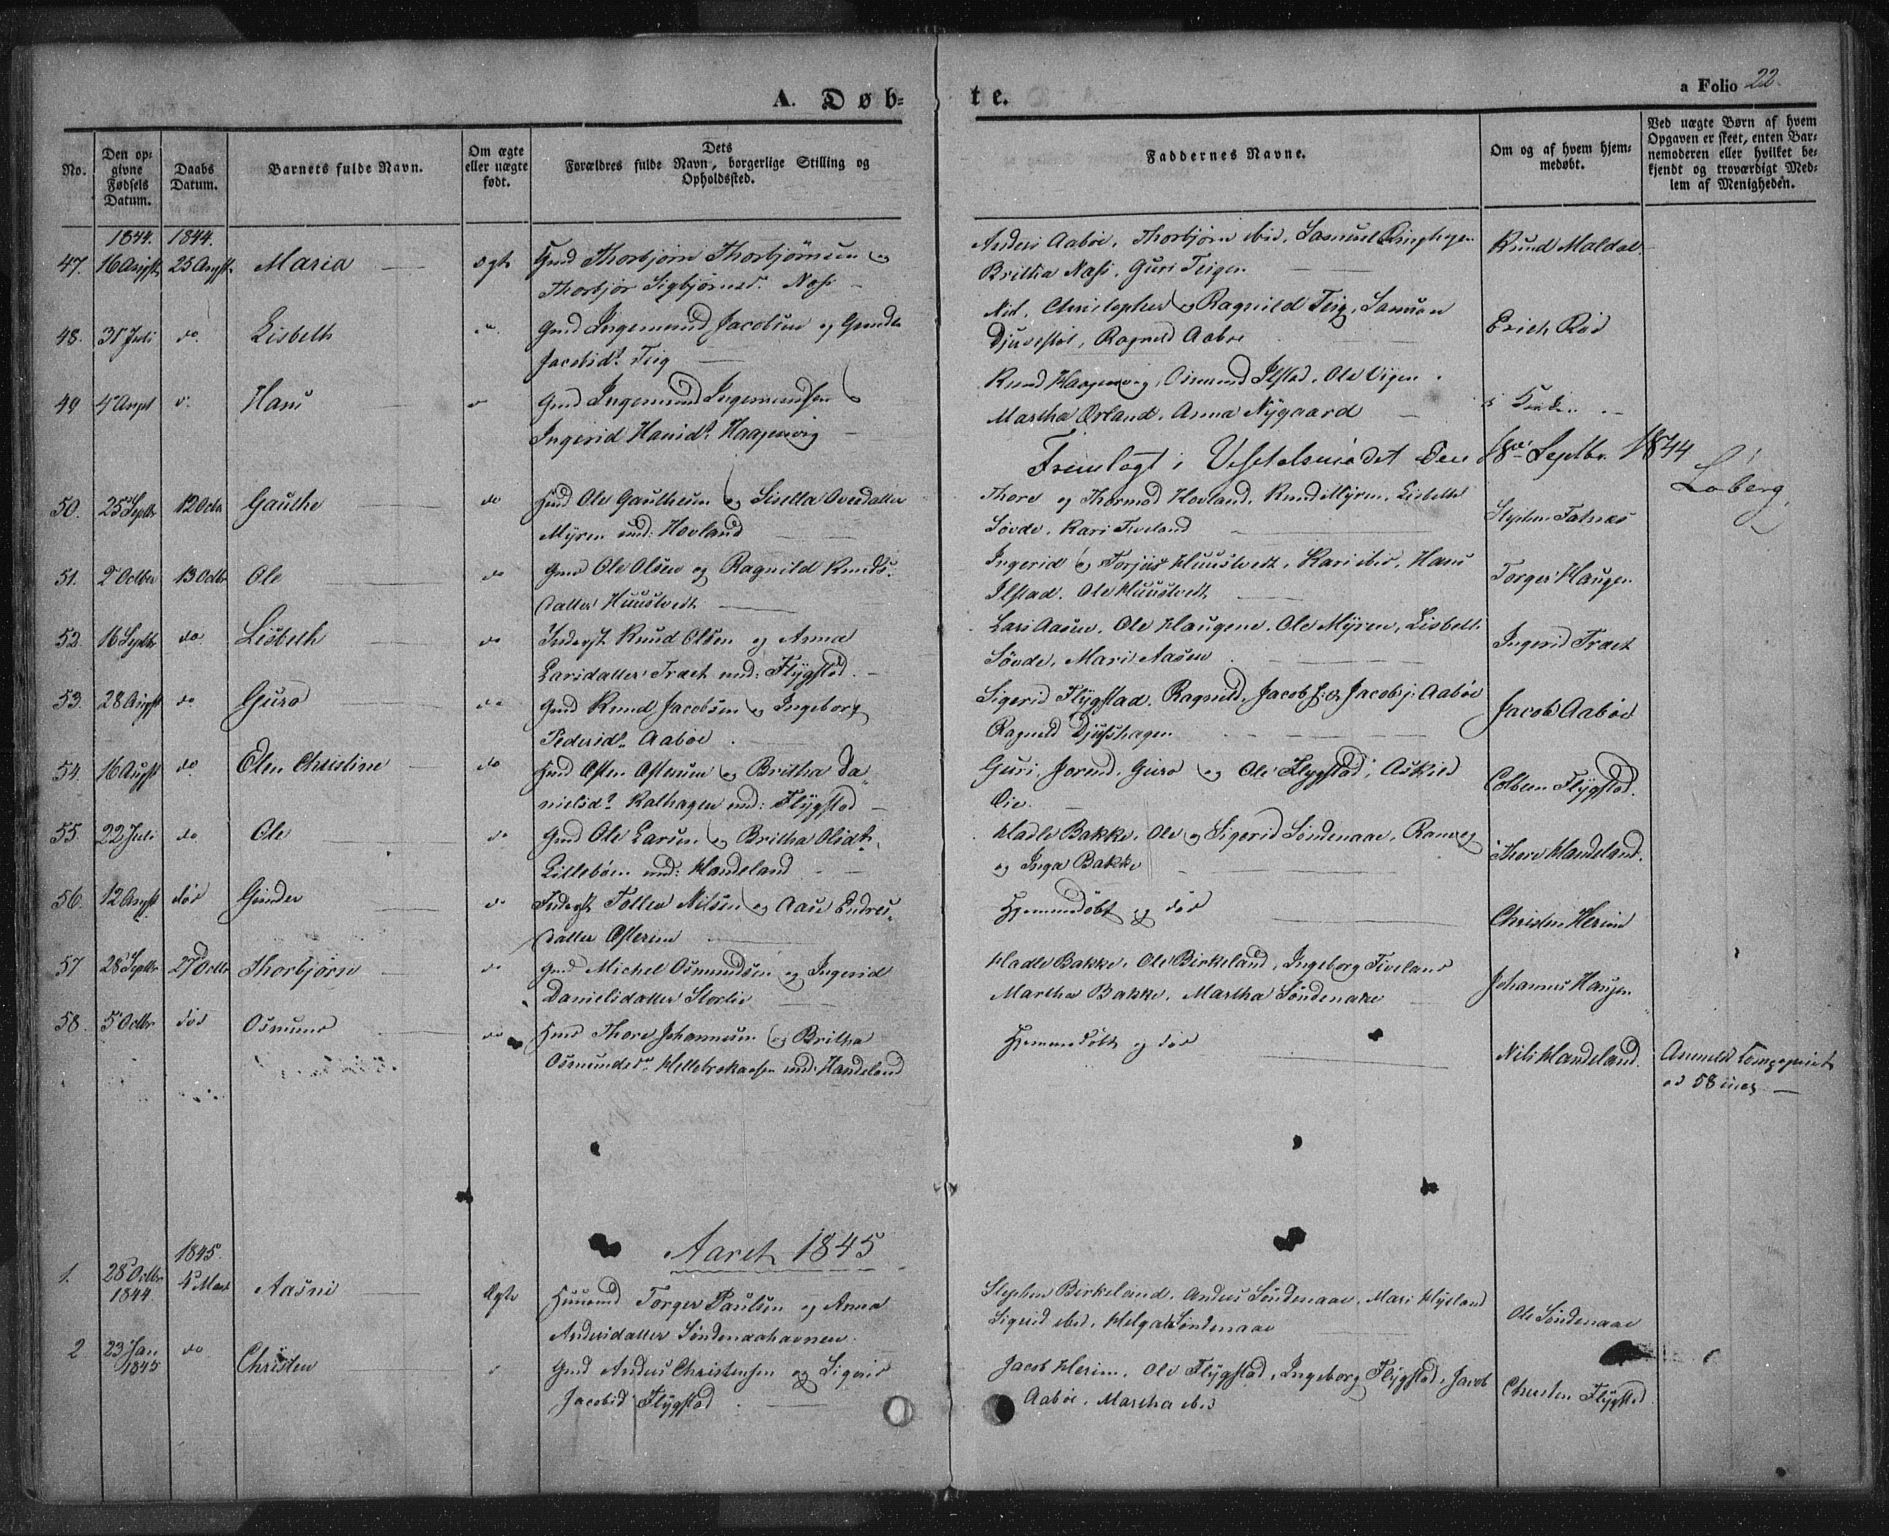 A. Døb=
te.
a Folio 22.
No.
Den op=
givne
Fødsels
Datum.
Daabs
Datum.
Barnets fulde Navn.
Om ægte
eller uægte
født.
Dets
Forældres fulde Navn, borgerlige Stilling og
Opholdssted.
Faddernes Navne.
Om og af hvem hjem=
medøbt.
Ved uægte Børn af hvem
Opgaven er skeet, enten Bar=
nemoderen eller hvilket be=
kjendt og troværdigt Med=
lem af Menigheden.
1844. 1844.
47. 16 Augst 25 Augst. Maria ægte Gmd Thorbjørn Thorbjørnsen og
Thorbjør Sigbjørnsd. Næss
Anders Aabøe, Thorbjørn ibid, Samuel Ringhagen
Brittia Næss, Guri Teigen
Knud Maldal
48. 31 Juli do. Lisbeth Gmd Ingemund Jacobsen og Gunda
Jacobsd. Teig
Nil, Christopher og Ragnild Teig, Samson
Djuvestøl, Ragnild Aabøe
Erich Røe
49 4 Augst Hans Gmd Ingemund Ingemundsen
Ingerid Hansd. Haagenvig
Knud Haagenvig, Osmund Ilstad, Ole Vigen
Martha Ørland, Anna Nygaard
Fremlagt i Visitatsmødet den 18de Septbr. 1844
Løberg
50. 25 Septbr 12 Octbr Gauthe do Hmd Ole Gautheson og Sisella Ovedatter
Myren und: Hovland
Thore og Thormod Hovland, Knud Myren, Lisbeth
Søvde, Kari Tveland
Stephen Fatnæs
51. 2 Octber 13 Octbr Ole do Gmd Ole Olsen og Ragnild Knuds=
datter Huustvedt
Ingerid og Torjus Huustvedt, Kari ibid, Hans
Ilstad, Ole Huustvedt
Torger Haugen
52. 16 Septbr do Lisbeth do Inderst Knud Olsen og Anna
Larsdatter Traet und: Flygstad.
Lars Aasen, Ole Haugene, Ole Myren, Lisbeth
Søvde, Mari Aasen
Ingerid Traet
53. 28 Augst do Guro do Gmd Knud Jacobsen og Ingeborg
Pedersd. Aabøe.
Sigerid Flygstad, Ragnild, Jacob og Jacob Aabøe
Ragnild Djufshagen
Jacob Aabøe
54. 16 Augst do. Elen Christine do Hmd Osten Ostensen og Britha Da=
nielsd. Kalhagen und: Flygstad
Guri, Jorend, Guro og Ole Flygstad, Askild
Øie.
Colbeen Flygstad.
55. 22 Juli do Ole do Gmd Ole Larsen og Britha Olsdt.
Lillebøen und: Handeland
Hadle Bakke, Ole og Sigerid Søndenaae, Ranveg
og Inga Bakke
Thore Handeland.
56. 12 Augst død Gunder do Inderst Tollev Nilsen og Aase Endres=
datter
Hjemmedøbt og død
Christen Herim
57 28 Septbr 27 Octbr Thorbjørn do Gmd Michel Osmundsen og Ingerid
Danielsdatter Storlie
Hadle Bakke, Ole Birkeland, Ingeborg Tveland
Martha Bakke, Martha Søndenaae
Johannes Haugen
58. 5 Octbr død Osmund do Hmd Thore Johannesen og Britha
Osmundsd. und: Handeland
Hjemmedøbt og død
Nils Handeland. Anmeldt
58
Aaret 1845
1845.
1. 28 Octbr 4 Mart Aasni ægte Huusmd Torger Paulsen og Anna
1844
Andersdatter Søndenaahavnen
Stephen Birkeland, Anders Søndenaae, Mari Hyeland
Sigrid ibid, Helga Søndenaae
Ole Søndenaae
2 23 Jan do Christen Gmd Anders Christensen og Sigrid
1845
Jacobsd Flygstad
Jacob Herim, Ole Flygstad, Ingeborg Flygstad, Jacob
Aabøe, Martha ibid
Christen Flygstad